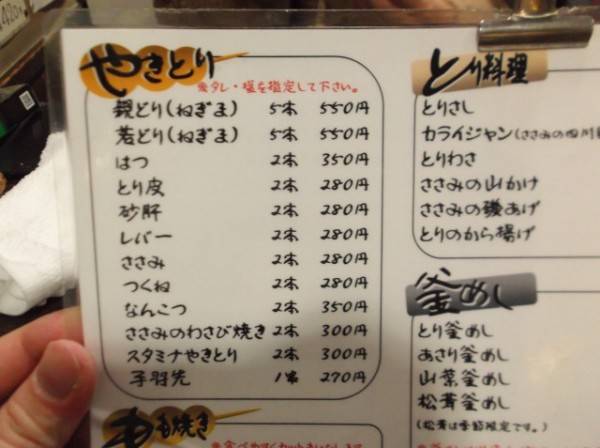 やきとり
※タレ・塩を指定して下さい。
親どり(ねぎま) 5本 550円
若どり(ねぎま) 5本 550円
はつ 2本 350円
とり皮 2本 280円
砂肝 2本 280円
レバー 2本 280円
ささみ 2本 280円
つくね 2本 280円
なんこつ 2本 350円
ささみのわさび焼き 2本 300円
スタミナやきとり 2本 300円
手羽先 1串 270円
もも焼き
とり料理
とりさし
カライジャン(ささみの四川
とりわさ
ささみの山かけ
ささみの磯あげ
とりのから揚げ
釜めし
とり釜めし
あさり釜めし
山菜釜めし
松茸釜めし
(松茸は季節限定です。)